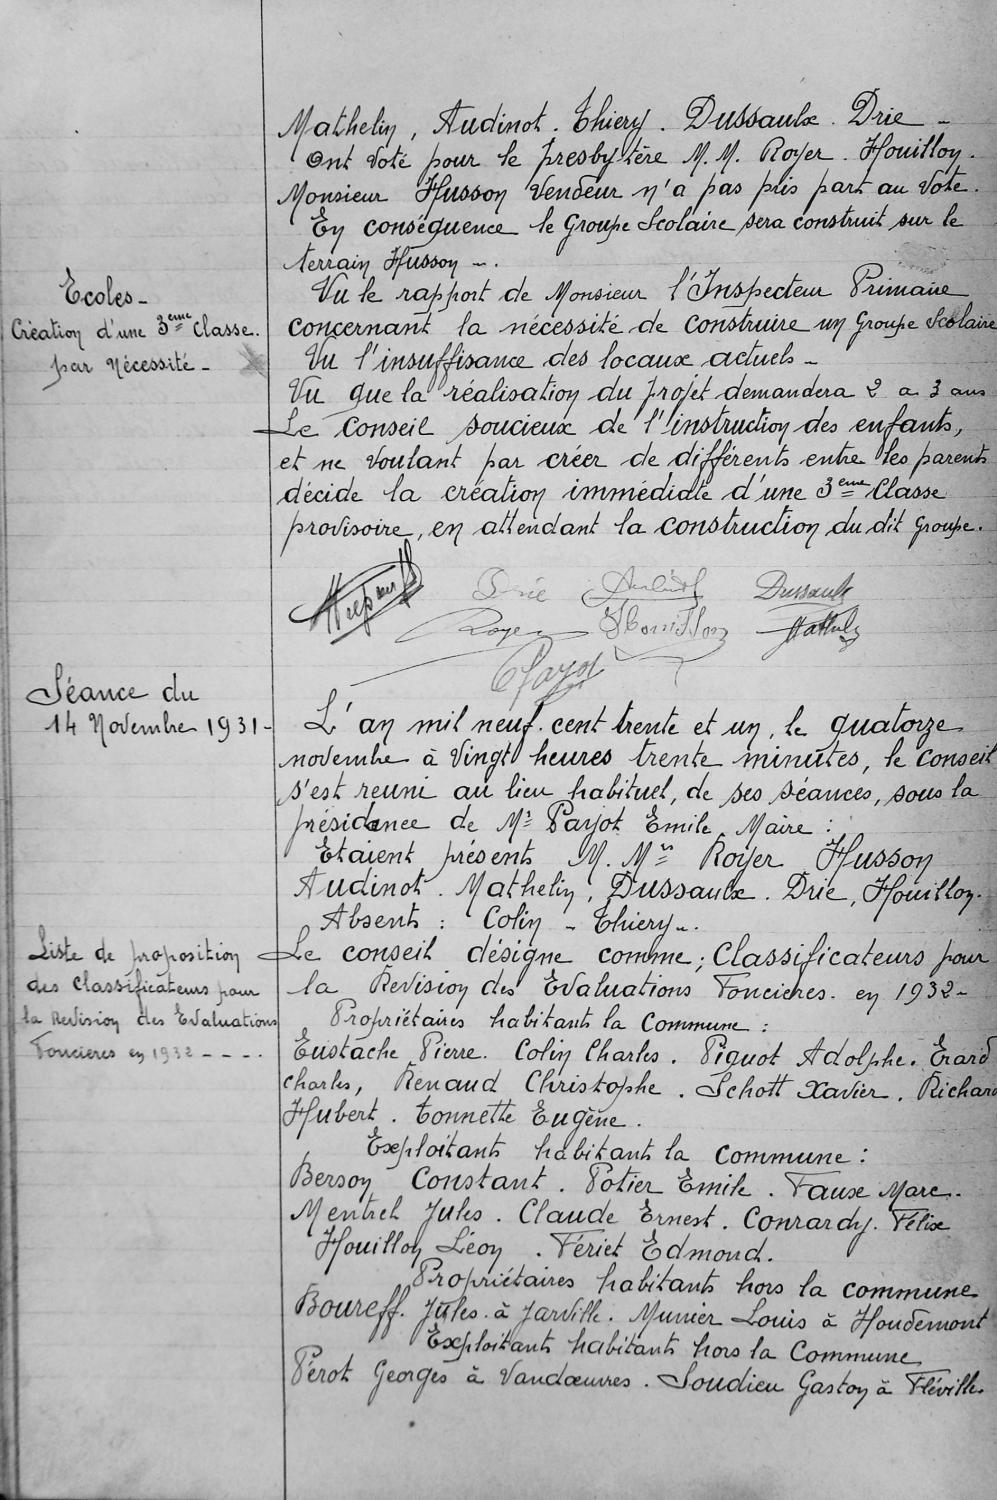 Mathelin, Audinot. Thiery. Dussaulx. Drie -
Ont voté pour le presbytère M.M. Royer. Houillon.
Monsieur Husson vendeur n'a pas pris part au vote.
En conséquence le Groupe Scolaire sera construit sur le
terrain Husson -.
Ecoles -
Création d'une 3eme Classe.
par Nécessité -
Vu le rapport de Monsieur l'Inspecteur Primaire
concernant la nécessité de construire un Groupe Scolaire
Vu l'insuffisance des locaux actuels -
Vu que la réalisation du projet demandera 2 a 3 ans
Le Conseil soucieux de l'instruction des enfants,
et ne voulant par créer de différents entre les parents
décide la création immédiate d'une 3eme Classe
provisoire, en attendant la construction du dit Groupe.
Drié Audinot Dussaulx
Royer Houillon Mathelin
Payot
Séance du
14 Novembre 1931 -
L'an mil neuf. cent trente et un, le quatorze
novembre à vingt heures trente minutes, le conseil
s'est reuni au lieu habituel, de ses séances, sous la
présidence de Mr Payot Emile Maire :
Etaient présents M. Mrs Royer Husson
Audinot. Mathelin, Dussaulx. Drie, Houillon.
Absents : Colin - Thiery -.
Liste de proposition
des Classificateurs pour
la Revision des Evaluations
Foncieres en 1932 - - - -.
Le conseil désigne comme ; Classificateurs pour
la Revision des Evaluations Foncieres. en 1932 -
Propriétaires habitants la Commune :
Eustache Pierre. Colin Charles. Piquot Adolphe. Erard
Charles, Renaud Christophe. Schott Xavier. Richard
Hubert. Tonnette Eugène.
Exploitants habitants la Commune :
Berson Constant. Potier Emile. Faux Marc.
Mentrel Jules. Claude Ernest. Conrardy. Félix
Houillon Léon. Fériet Edmond.
Propriétaires habitants hors la commune
Boureff. Jules. à Jarville. Munier Louis à Houdemont
Exploitants habitants hors la Commune
Pérot Georges à Vandœuvres. Soudieu Gaston à Fléville.